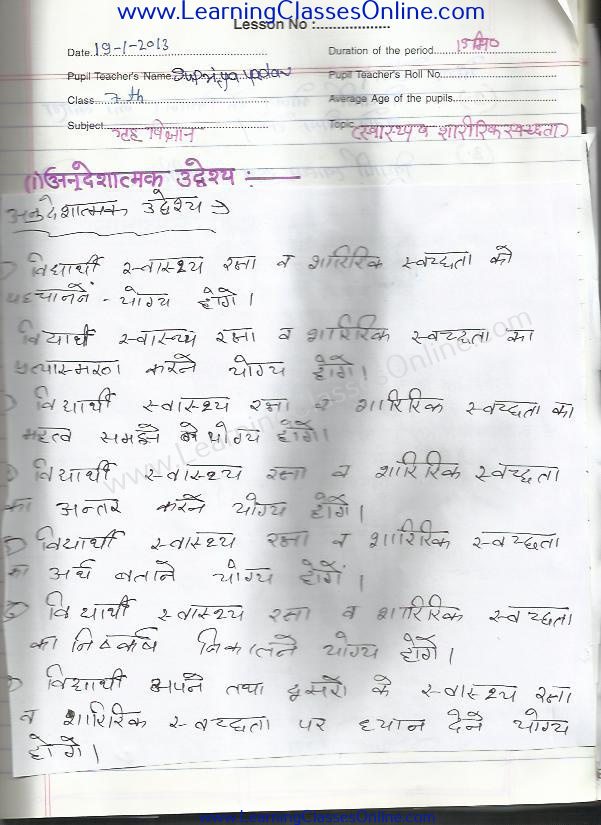 www.LearningClassesOnline.com
Lesson No :..................
Date 19-1-2013 Duration of the period 15 मि०
Pupil Teacher's Name Supriya yadav Pupil Teacher's Roll No.
Class 7th Average Age of the pupils
Subject गृह विज्ञान Topic (स्वास्थ्य व शारीरिक स्वच्छता)
(1) अनुदेशात्मक उद्देश्य :—
अनुदेशात्मक उद्देश्य →
विद्यार्थी स्वास्थ्य रक्षा व शारिरिक स्वच्छता को
पहचानने - योग्य होंगे।
विद्यार्थी स्वास्थ्य रक्षा व शारिरिक स्वच्छता का
प्रत्यास्मरण करने योग्य होंगे।
विद्यार्थी स्वास्थ्य रक्षा व शारिरिक स्वच्छता का
महत्व समझने के योग्य होंगे।
विद्यार्थी स्वास्थ्य रक्षा व शारिरिक स्वच्छता
का अन्तर करने योग्य होंगे।
विद्यार्थी स्वास्थ्य रक्षा व शारिरिक स्वच्छता
का अर्थ बताने योग्य होंगें।
विद्यार्थी स्वास्थ्य रक्षा व शारिरिक स्वच्छता
का निष्कर्ष निकालने योग्य होंगे।
विद्यार्थी अपने तथा दूसरो के स्वास्थ्य रक्षा
व शारिरिक स्वच्छता पर ध्यान देने योग्य
होंगे।
www.LearningClassesOnline.com
www.LearningClassesOnline.com